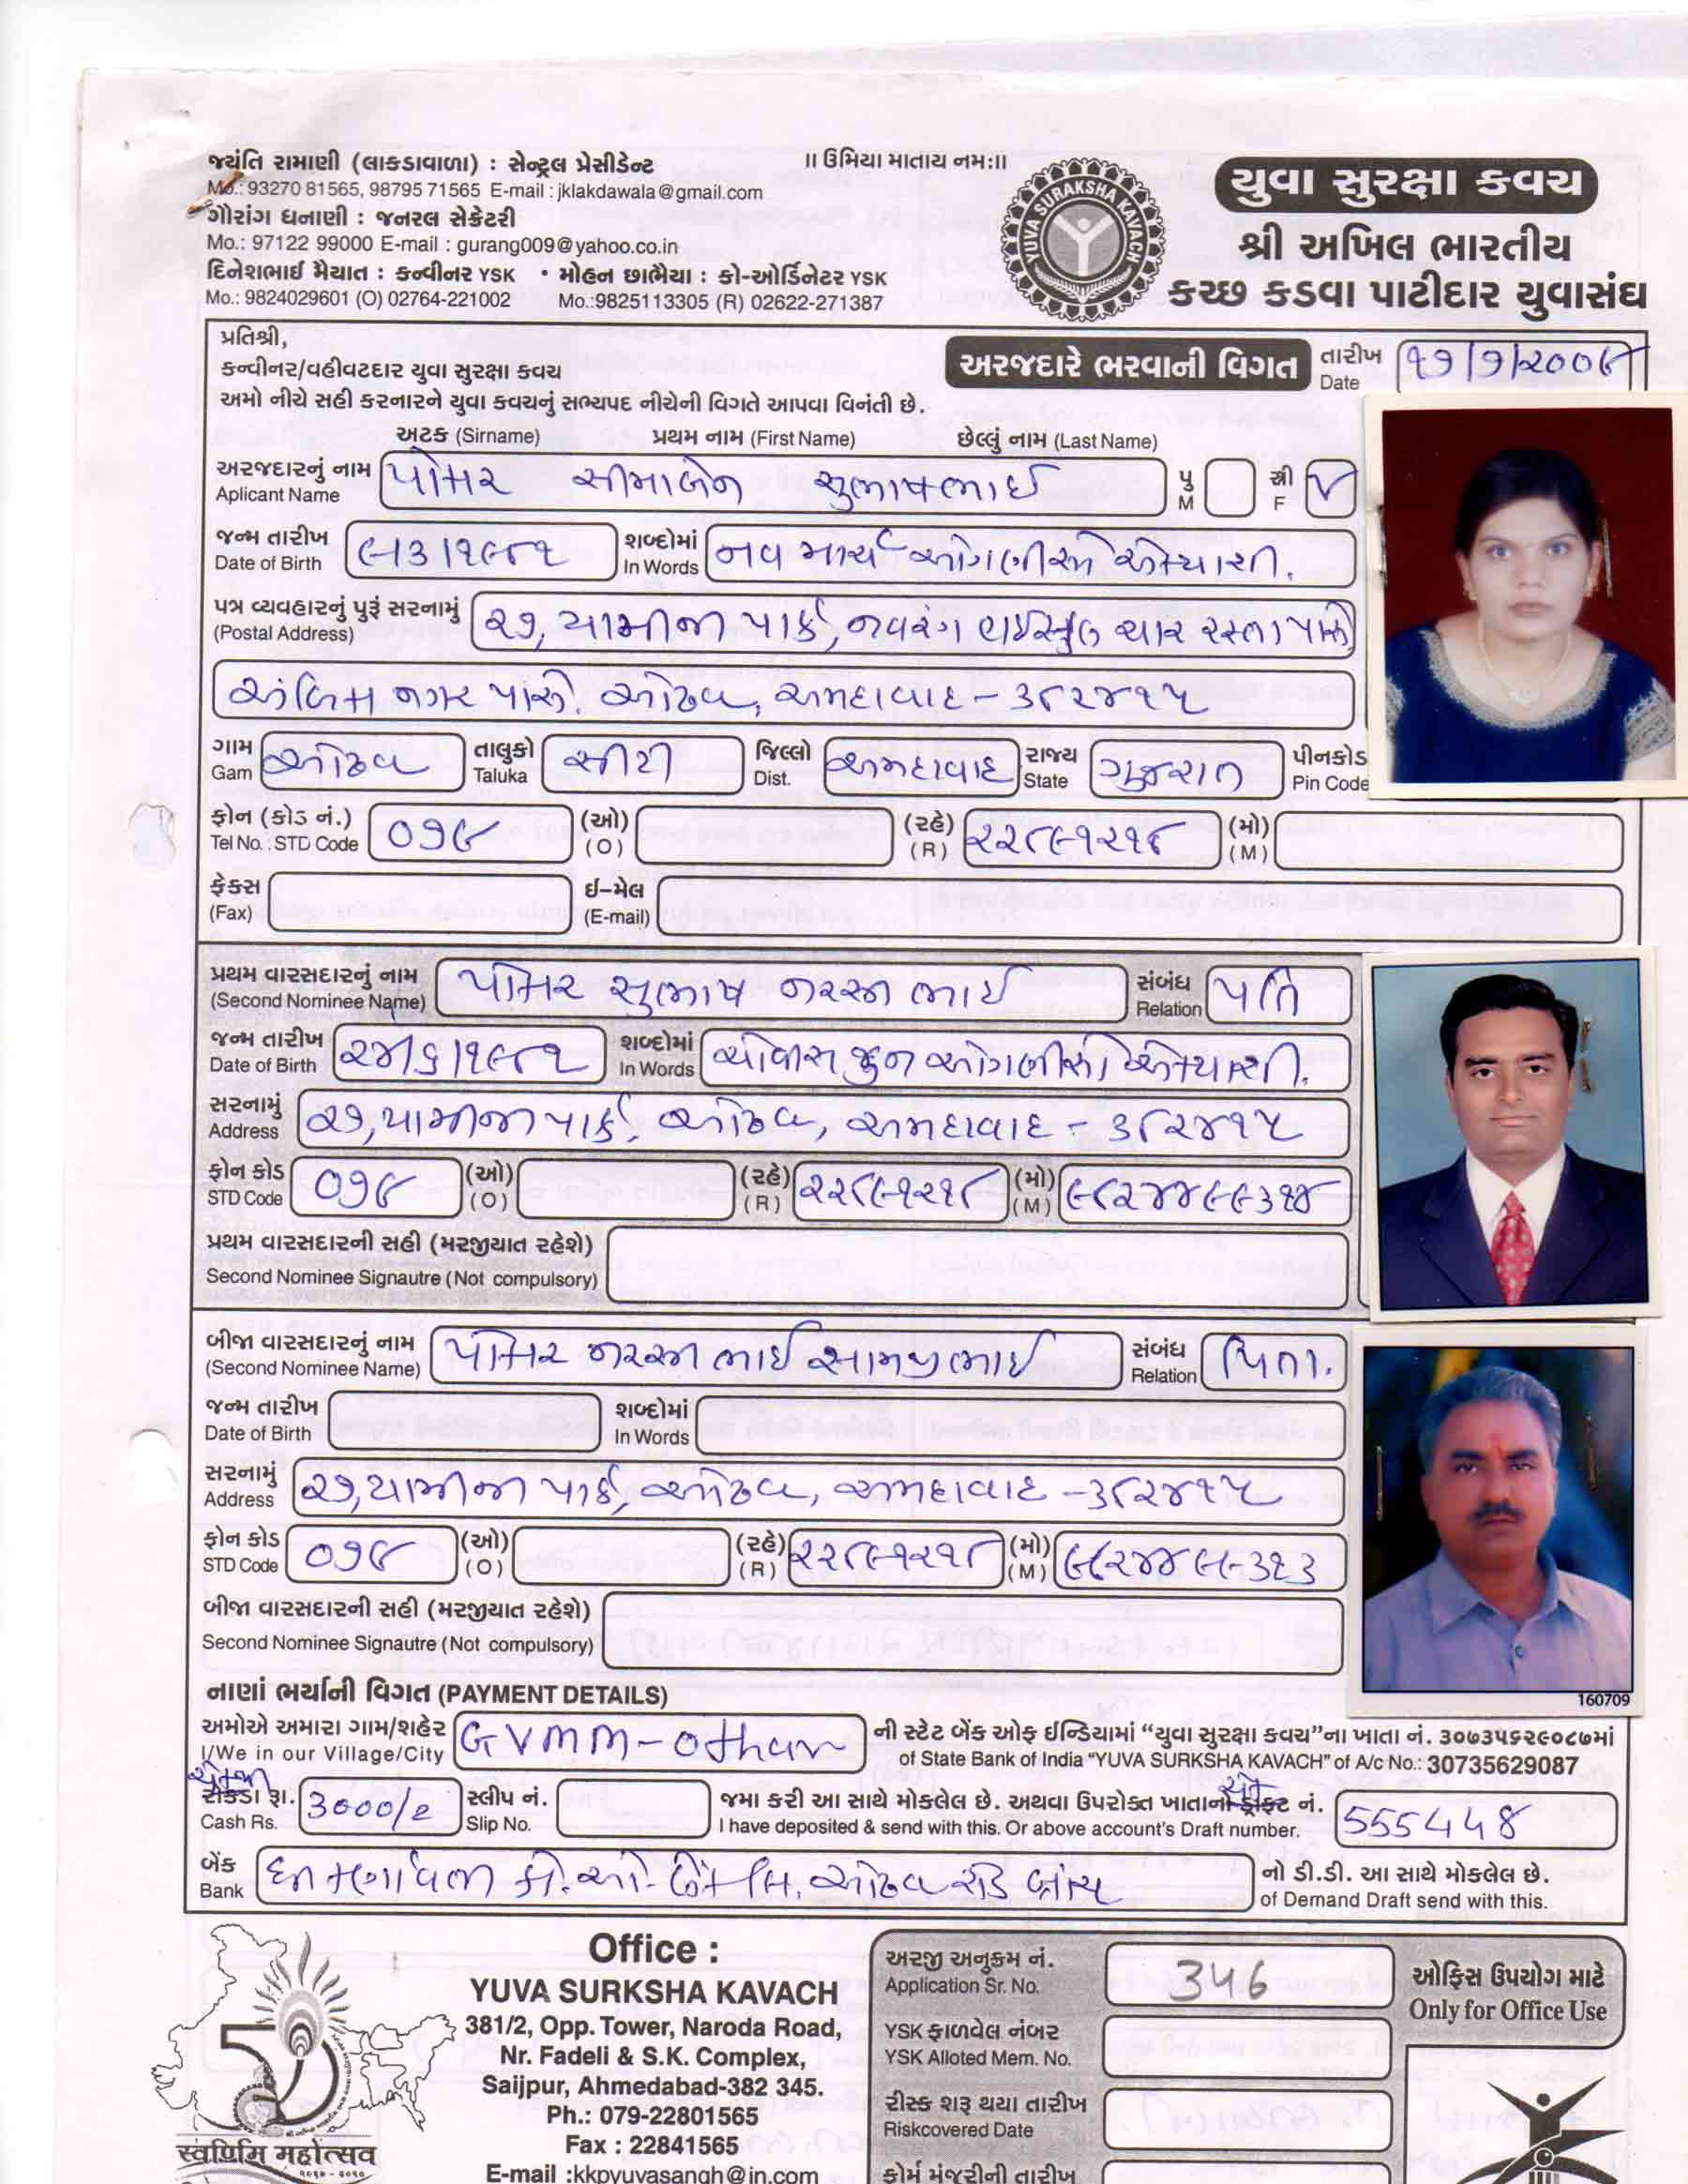 જયંતિ રામાણી (લાકડાવાળા) : સેન્ટ્રલ પ્રેસીડેન્ટ
Mo.: 93270 81565, 98795 71565 E-mail : jklakdawala@gmail.com
ગૌરાંગ ધનાણી : જનરલ સેક્રેટરી
Mo.: 97122 99000 E-mail : gurang009@yahoo.co.in
દિનેશભાઈ મૈયાત : કન્વીનર YSK • મોહન છાભૈયા : કો-ઓર્ડિનેટર YSK
Mo.: 9824029601 (O) 02764-221002 Mo.:9825113305 (R) 02622-271387
॥ ઉમિયા માતાય નમઃ॥
YUVA SURAKSHA KAVACH
યુવા સુરક્ષા કવચ
શ્રી અખિલ ભારતીય
કચ્છ કડવા પાટીદાર યુવાસંઘ
પ્રતિશ્રી,
કન્વીનર/વહીવટદાર યુવા સુરક્ષા કવચ
અમો નીચે સહી કરનારને યુવા કવચનું સભ્યપદ નીચેની વિગતે આપવા વિનંતી છે.
અરજદારે ભરવાની વિગત તારીખ Date ૧૭/૭/૨૦૦૯
અટક (Sirname) પ્રથમ નામ (First Name) છેલ્લું નામ (Last Name)
અરજદારનું નામ Aplicant Name પોમર સીમાબેન સુભાષભાઈ પુ M સ્ત્રી F ✓
જન્મ તારીખ Date of Birth ૯/૩/૧૯૮૧ શબ્દોમાં In Words નવ માર્ચ ઓગણીસો એક્યાસી.
પત્ર વ્યવહારનું પુરૂં સરનામું (Postal Address) ૨૭, યામીજા પાર્ક, નવરંગ હાઈસ્કુલ ચાર રસ્તા પાસે
નગર પાસે. ઓઢવ, અમદાવાદ - ૩૮૨૪૧૫
ગામ Gam ઓઢવ તાલુકો Taluka સીટી જિલ્લો Dist. અમદાવાદ રાજ્ય State ગુજરાત પીનકોડ Pin Code
ફોન (કોડ નં.) Tel No. : STD Code ૦૭૯ (ઓ) (O) (રહે) (R) ૨૨૮૯૧૨૧૮ (મો) (M)
ફેક્સ (Fax) ઈ-મેલ (E-mail)
પ્રથમ વારસદારનું નામ (Second Nominee Name) પોમર સુભાષ નરસીભાઈ સંબંધ Relation પતિ
જન્મ તારીખ Date of Birth ૨૪/૬/૧૯૮૧ શબ્દોમાં In Words ચોવીસ જુન ઓગણીસો એક્યાસી.
સરનામું Address ૨૭, યામીજા પાર્ક, ઓઢવ, અમદાવાદ - ૩૮૨૪૧૫
ફોન કોડ STD Code ૦૭૯ (ઓ) (O) (રહે) (R) ૨૨૮૯૧૨૧૮ (મો) (M)
પ્રથમ વારસદારની સહી (મરજીયાત રહેશે)
Second Nominee Signautre (Not compulsory)
બીજા વારસદારનું નામ (Second Nominee Name) પોમર નરસીભાઈ સામજીભાઈ સંબંધ Relation પિતા.
જન્મ તારીખ Date of Birth શબ્દોમાં In Words
સરનામું Address ૨૭, યામીજા પાર્ક, ઓઢવ, અમદાવાદ - ૩૮૨૪૧૫
ફોન કોડ STD Code ૦૭૯ (ઓ) (O) (રહે) (R) ૨૨૮૯૧૨૧૮ (મો) (M)
બીજા વારસદારની સહી (મરજીયાત રહેશે)
Second Nominee Signautre (Not compulsory)
160709
નાણાં ભર્યાની વિગત (PAYMENT DETAILS)
અમોએ અમારા ગામ/શહેર GVMM - Othav ની સ્ટેટ બેંક ઓફ ઈન્ડિયામાં “યુવા સુરક્ષા કવચ”ના ખાતા નં. ૩૦૭૩૫૬૨૯૦૮૭માં
I/We in our Village/City of State Bank of India "YUVA SURKSHA KAVACH" of A/c No.: 30735629087
રોકડા રૂા. 3000/= સ્લીપ નં. જમા કરી આ સાથે મોકલેલ છે. અથવા ઉપરોક્ત ખાતાનો ચેક ડ્રાફ્ટ નં. 555448
Cash Rs. Slip No. I have deposited & send with this. Or above account's Draft number.
બેંક કો. ઓ. બેંક લિ. ઓઢવ રોડ બ્રાંચ નો ડી.ડી. આ સાથે મોકલેલ છે.
Bank of Demand Draft send with this.
स्वर्णिम महोत्सव
Office :
YUVA SURKSHA KAVACH
381/2, Opp. Tower, Naroda Road,
Nr. Fadeli & S.K. Complex,
Saijpur, Ahmedabad-382 345.
Ph.: 079-22801565
Fax : 22841565
E-mail :kkpyuvasangh@in.com
અરજી અનુક્રમ નં.
Application Sr. No. 346
YSK ફાળવેલ નંબર
YSK Alloted Mem. No.
રીસ્ક શરૂ થયા તારીખ
Riskcovered Date
ફોર્મ મંજૂરીની તારીખ
ઓફિસ ઉપયોગ માટે
Only for Office Use